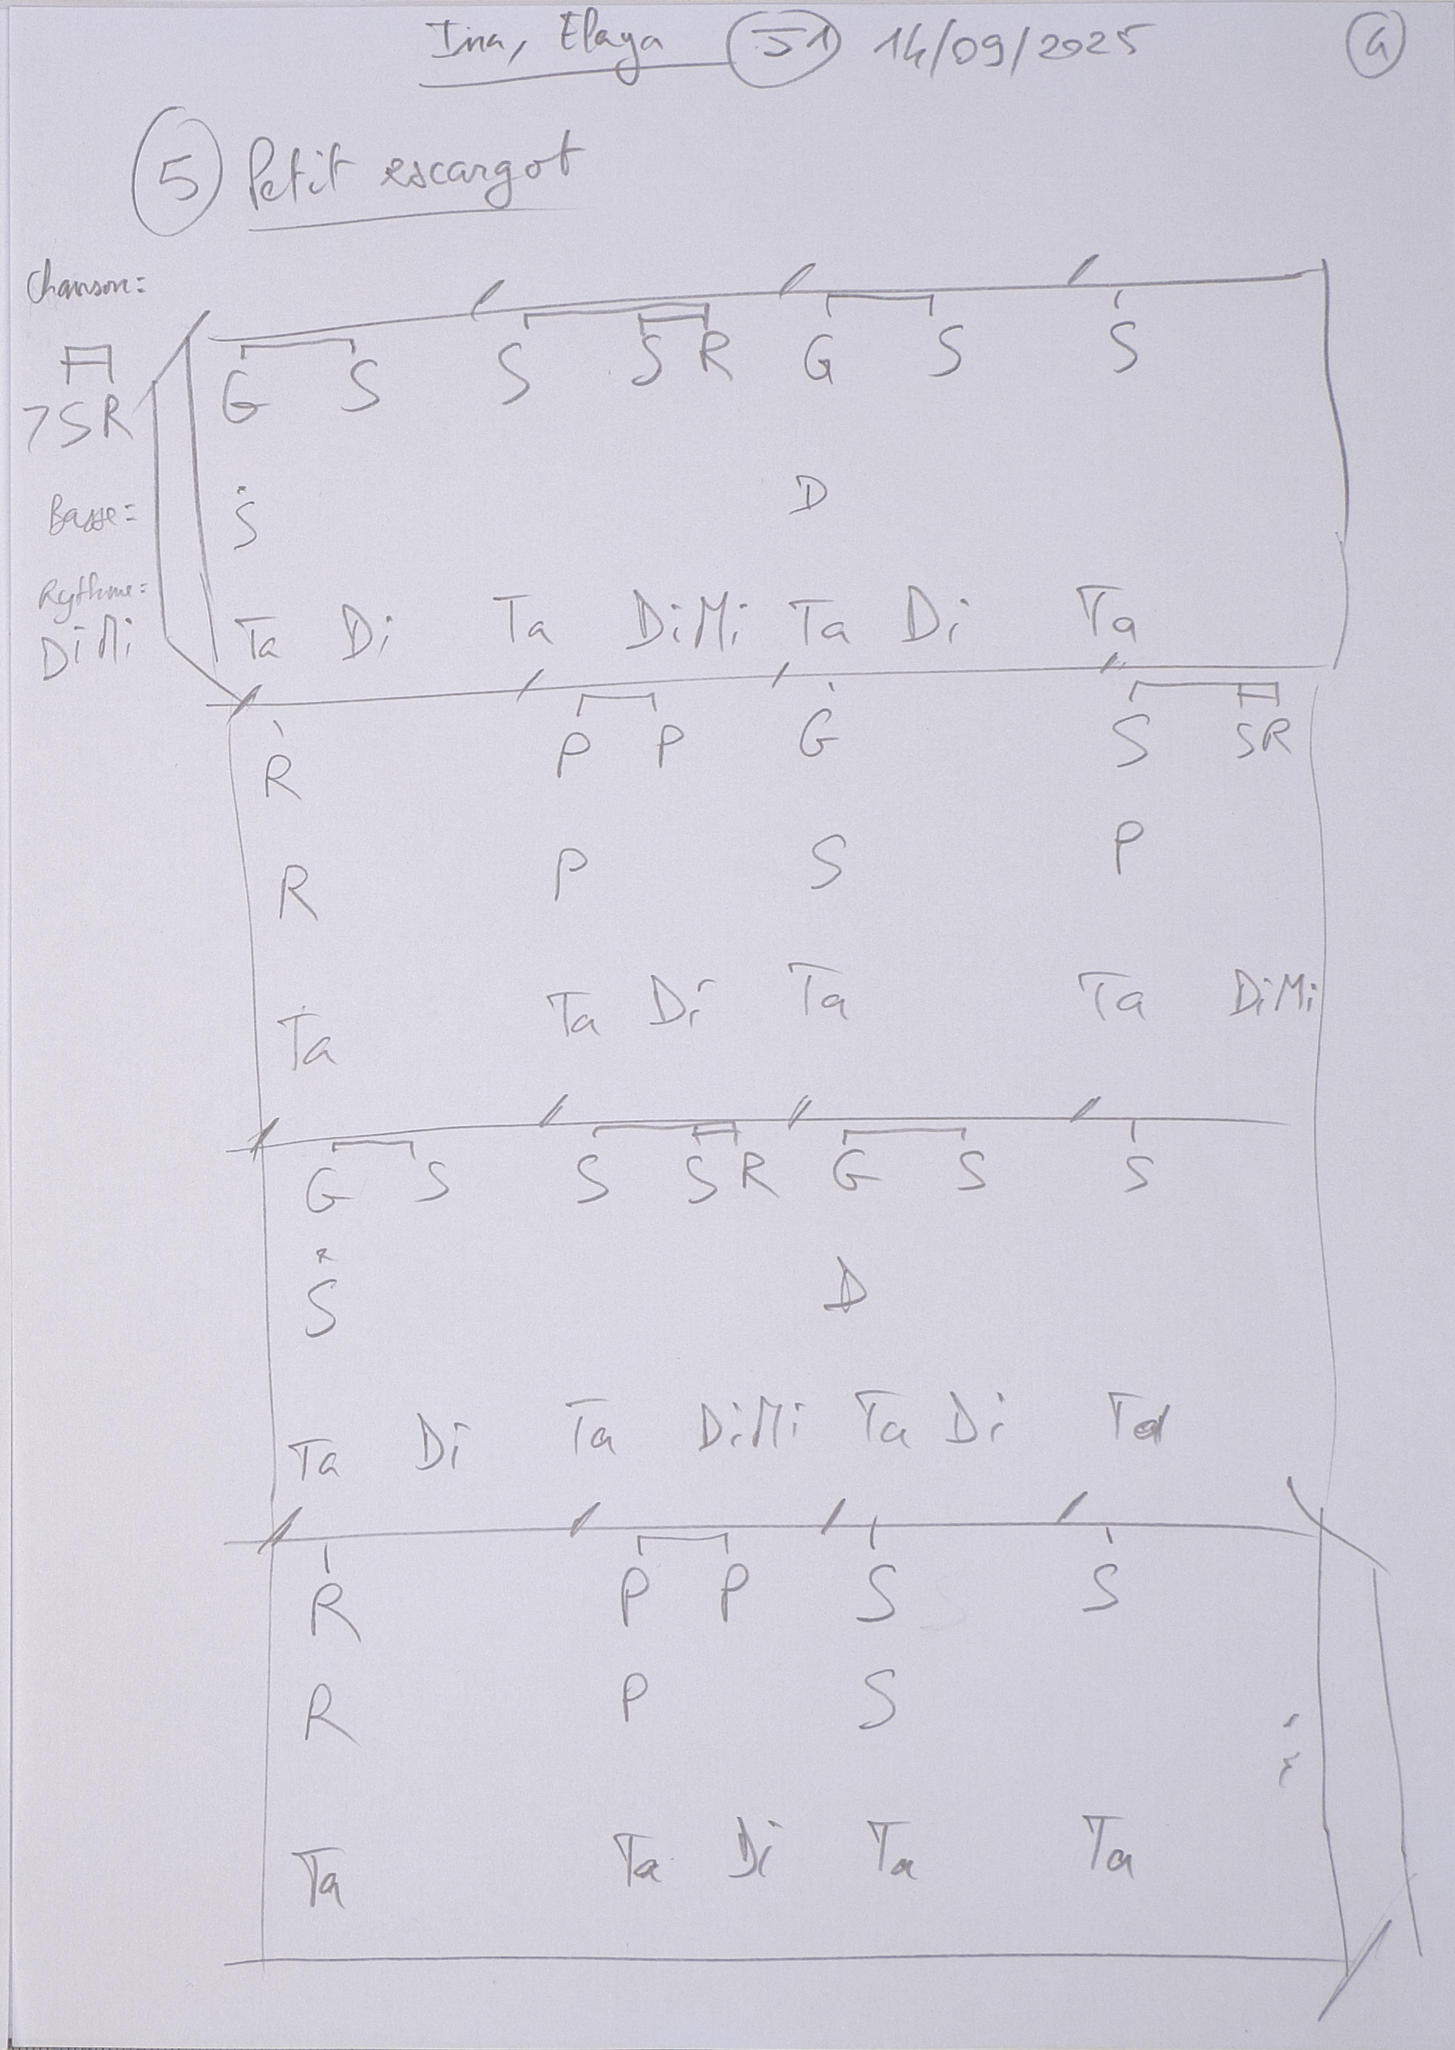 Ina, Elaya J1 14/09/2025 a
5 Petit escargot
Chanson:
7SR G S S SR G S S
Basse: S D
Rythme:
DiMi Ta Di Ta DiMi Ta Di Ta
R P P G S SR
R P S P
Ta Ta Di Ta Ta DiMi
G S S SR G S S
S D
Ta Di Ta DiMi Ta Di Ta
R P P S S
R P S
Ta Ta Di Ta Ta